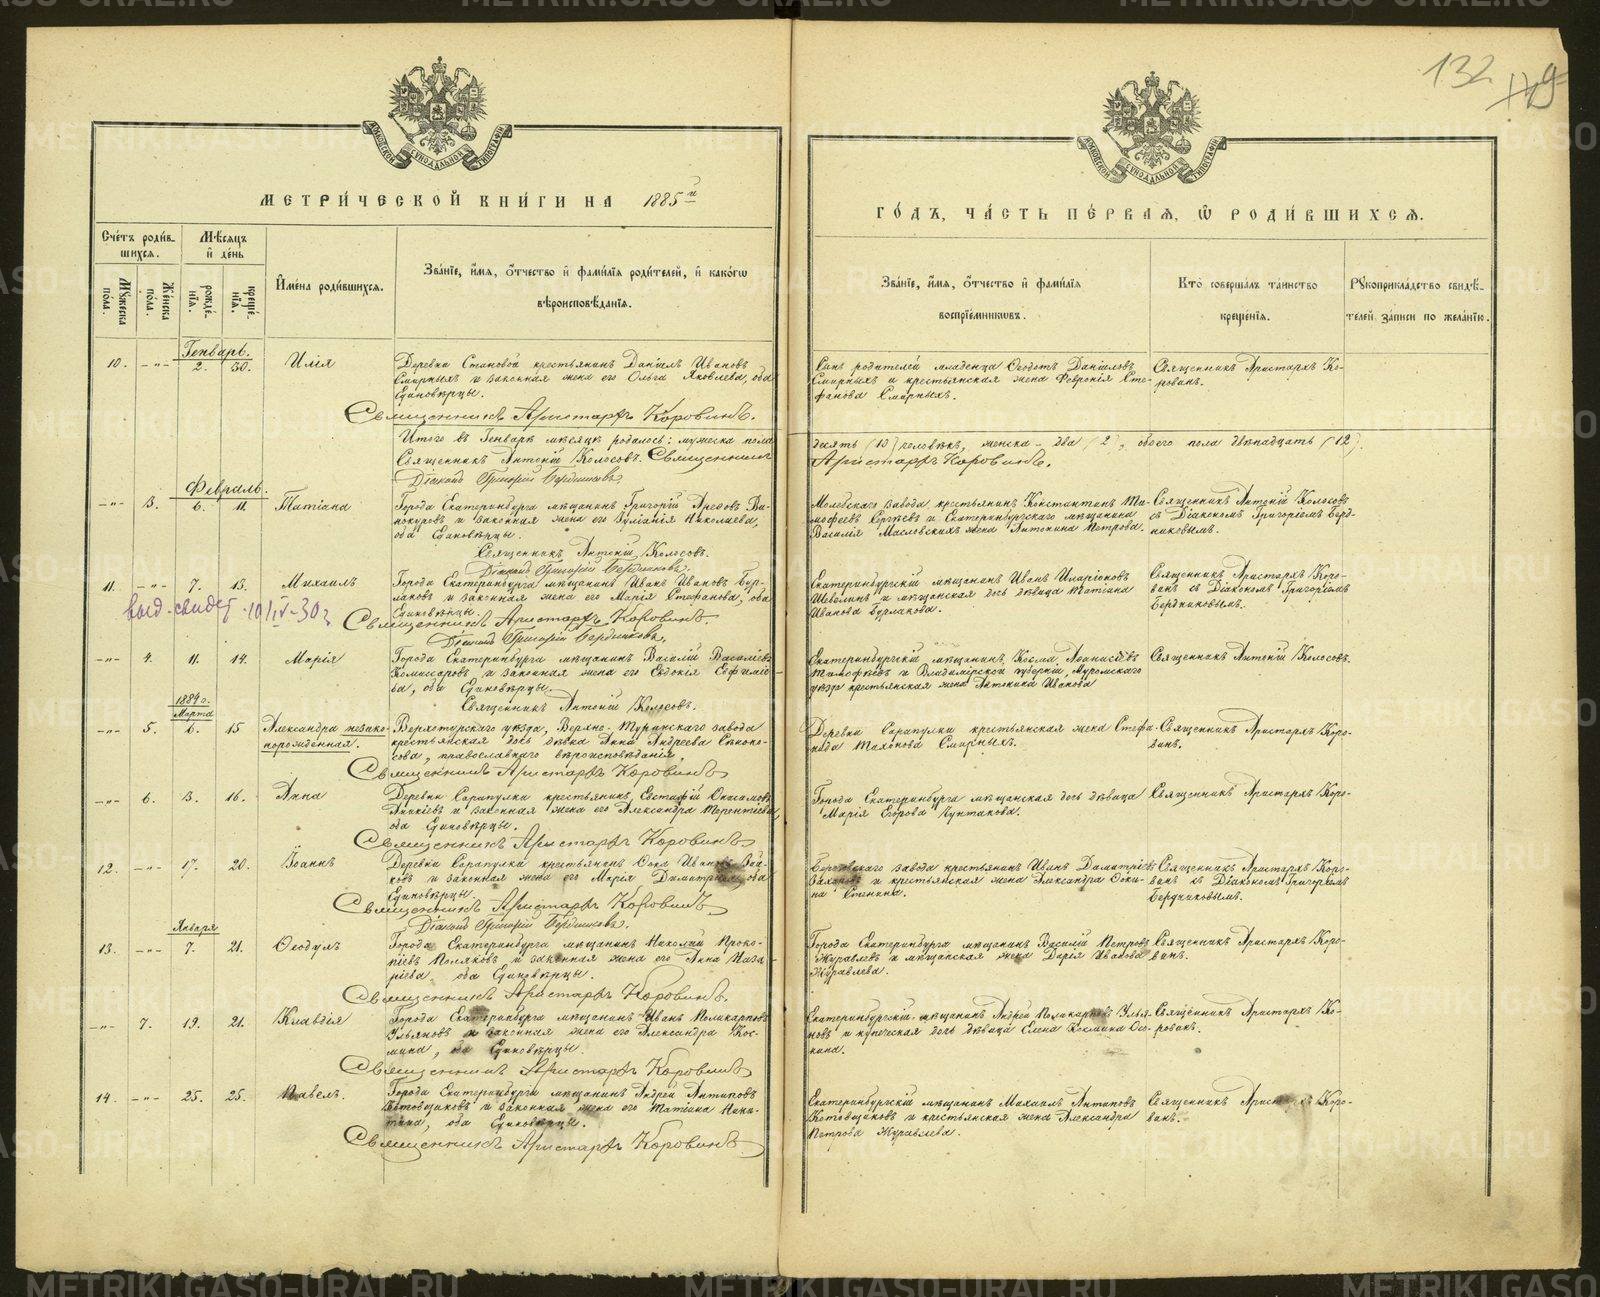 132
119
МОСКОВСКОЙ СѴНОДАЛЬНОЙ ТИПОГРАФІИ
МОСКОВСКОЙ СѴНОДАЛЬНОЙ ТИПОГРАФІИ
МЕТРИ́ЧЕСКОЙ КНИ́ГИ НА 1885й
ГО́ДЪ, ЧА́СТЬ ПЕ́РВАЯ, Ѡ҆ РОДИ́ВШИХСЯ.
Сче́тъ роди́в-
шихся.
Мѣ́сяцъ
и҆ де́нь
Мꙋ́жеска по́ла.
Же́нска по́ла.
рожде́нїя.
креще́нїя.
И҆мена̀ роди́вшихся.
Зва́нїе, и҆́мя, ѻ҆́тчество и҆ фами́лїя роди́телей, и҆ како́гѡ
вѣроисповѣ́данїя.
Зва́нїе, и҆́мя, ѻ҆́тчество и҆ фами́лїя
воспрїе́мникѡвъ.
Кто̀ соверша́лъ та́инство
креще́нїя.
Рꙋкоприкла́дство свидѣ́-
телей за́писи по жела́нїю.
Генварь.
10. -"- 2. 30. Илія
Деревни Становой крестьянинъ Даніилъ Ивановъ
Смирныхъ и законная жена его Ольга Яковлева, оба
Единовѣрцы.
Священникъ Аристархъ Коровинъ.
Сынъ родителей младенца Ѳеодотъ Даніиловъ
Смирныхъ и крестьянская жена Февронія Сте-
фанова Смирныхъ.
Священникъ Аристархъ Ко-
ровинъ.
Итого въ Генварѣ мѣсяцѣ родилось: мужеска пола
десять (10) человѣкъ, женска - два (2), обоего пола двѣнадцать (12).
Священникъ Антоній Колосовъ. Священникъ
Аристархъ Коровинъ.
Діаконъ Григорій Бердниковъ.
Февраль.
-"- 3. 6. 11. Татіана
Города Екатеринбурга мѣщанинъ Григорій
и законная жена его Николаева,
оба Единовѣрцы.
Священникъ Антоній Колосовъ.
Діаконъ Григорій Бердниковъ.
завода крестьянинъ Константинъ Ти-
мофеевъ Сергѣевъ и Екатеринбургскаго мѣщанина
Василія Масловскихъ жена Антонина Петрова.
Священникъ Антоній Колосовъ
съ Діакономъ Григоріемъ Берд-
никовымъ.
11. -"- 7. 13. Михаилъ
Города Екатеринбурга мѣщанинъ Иванъ Ивановъ Бур-
лаковъ и законная жена его Марія Стефанова, оба
Единовѣрцы.
Священникъ Аристархъ Коровинъ.
Діаконъ Григорій Бердниковъ.
выд. свидет. 10/IV-30 г
Екатеринбургскій мѣщанинъ Иванъ Иларіоновъ
Швелинъ и мѣщанская дочь дѣвица Татіана
Иванова Бурлакова.
Священникъ Аристархъ Коро-
винъ съ Діакономъ Григоріемъ
Бердниковымъ.
-"- 4. 11. 14. Марія
Города Екатеринбурга мѣщанинъ Василій Василіевъ
Комиссаровъ и законная жена его Евдокія Евфиміо-
ва, оба Единовѣрцы.
Священникъ Антоній Колосовъ.
Екатеринбургскій мѣщанинъ Косма
Тимофѣевъ и Владимірской губерніи, Муромскаго
уѣзда крестьянская жена Антонина Иванова
Священникъ Антоній Колосовъ.
1884 г.
Марта
-"- 5. 6. 15 Александра незако-
норожденная.
Верхотурскаго уѣзда, Верхне-Туринскаго завода
крестьянская дочь дѣвка Анна Андреева
православнаго вѣроисповѣданія.
Священникъ Аристархъ Коровинъ
Деревни Сарапулки крестьянская жена Стефа-
нида Тихонова Смирныхъ.
Священникъ Аристархъ Коро-
винъ.
-"- 6. 3. 16. Анна
Деревни Сарапулки крестьянинъ Евстафій
и законная жена его Александра Терентіева,
оба Единовѣрцы.
Священникъ Аристархъ Коровинъ
Города Екатеринбурга мѣщанская дочь дѣвица
Марія Егорова
Священникъ Аристархъ Коро-
12. -"- 17. 20. Іоаннъ
Деревни Сарапулки крестьянинъ Ѳока Ивановъ
и законная жена его Марія Димитріева, оба
Единовѣрцы.
Священникъ Аристархъ Коровинъ.
Діаконъ Григорій Бердниковъ.
Березовскаго завода крестьянинъ Иванъ Димитріевъ
Захаровъ и крестьянская жена Александра Ѳоки-
на
Священникъ Аристархъ Коро-
винъ съ Діакономъ Григоріемъ
Бердниковымъ.
Января
13. -"- 7. 21. Ѳеодулъ
Города Екатеринбурга мѣщанинъ Николай Проко-
піевъ Поляковъ и законная жена его Анна Наза-
ріева, оба Единовѣрцы.
Священникъ Аристархъ Коровинъ.
Города Екатеринбурга мѣщанинъ Василій Петровъ
Журавлевъ и мѣщанская жена Дарія Иванова
Журавлева.
Священникъ Аристархъ Коро-
винъ.
-"- 7. 19. 21. Клавдія
Города Екатеринбурга мѣщанинъ Иванъ Поликарповъ
Ульяновъ и законная жена его Александра Кос-
мина, оба Единовѣрцы.
Священникъ Аристархъ Коровинъ
Екатеринбургскій мѣщанинъ Андрей Поликарповъ Улья-
новъ и купеческая дочь дѣвица Елена Космина
Священникъ Аристархъ Ко-
ровинъ.
14. -"- 25. 25. Павелъ.
Города Екатеринбурга мѣщанинъ Андрей Антиповъ
Котовщиковъ и законная жена его Татіана Ники-
тина, оба Единовѣрцы.
Священникъ Аристархъ Коровинъ.
Екатеринбургскій мѣщанинъ Михаилъ Антиповъ
Котовщиковъ и крестьянская жена Александра
Петрова Журавлева.
Священникъ Аристархъ Коро-
винъ.
METRIKI.GASO-URAL.RU